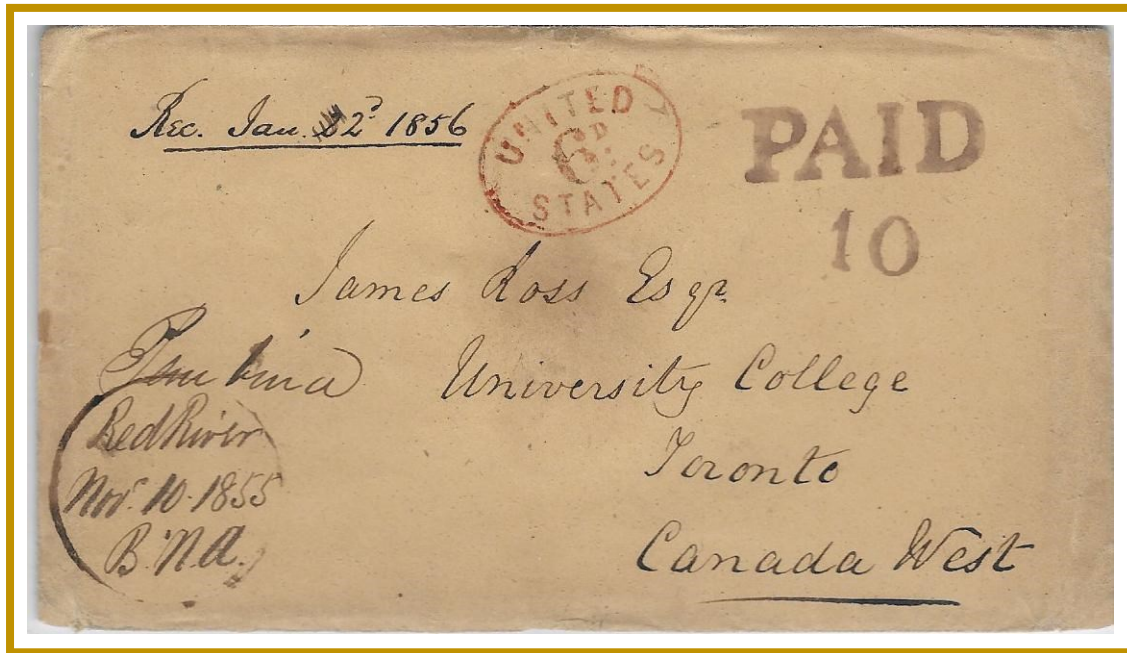 Rec. Jan. 2ᵈ 1856
UNITED
6D
STATES
PAID
10
James Ross Esqr.
University College
Toronto
Canada West
Pembina
Red River
Novr. 10. 1855
B.N.A.